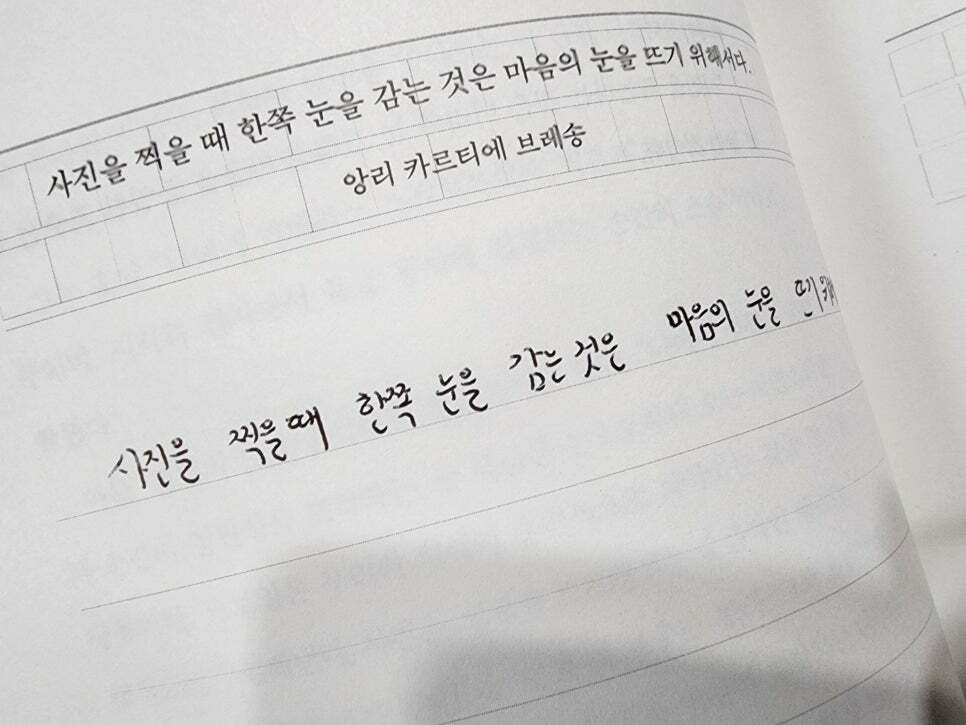 사진을 찍을 때 한쪽 눈을 감는 것은 마음의 눈을 뜨기 위해서다.
앙리 카르티에 브레송
사진을 찍을때 한쪽 눈을 감는 것은 마음의 눈을